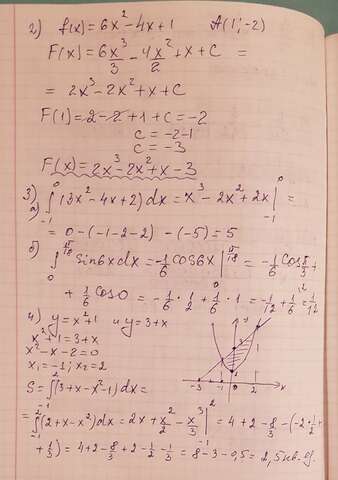 2) f(x)=6x²-4x+1 A(1;-2)
F(x)= 6x³/3 - 4x²/2 + x + C =
= 2x³-2x²+x+C
F(1)=2-2+1+C=-2
C=-2-1
C=-3
F(x)=2x³-2x²+x-3
3)
а) ∫₋₁⁰ (3x²-4x+2)dx = x³-2x²+2x |₋₁⁰ =
= 0-(-1-2-2)-(-5)=5
б) ∫₀^(π/18) Sin6xdx = -1/6 cos6x |₀^(π/18) = -1/6 Cos π/3 +
+ 1/6 Cos0 = -1/6 · 1/2 + 1/6 · 1 = -1/12 + 1/6 = 1/12
4) y=x²+1 и y=3+x
x²+1=3+x
x²-x-2=0
x₁=-1; x₂=2
S=∫₋₁²(3+x-x²-1)dx=
= ∫₋₁²(2+x-x²)dx = 2x+ x²/2 - x³/3 |₋₁² = 4+2-8/3-(-2+1/2
+1/3)=4+2-8/3+2-1/2-1/3=8-3-0,5=2,5кв.ед.
-3 -1 0 2 x